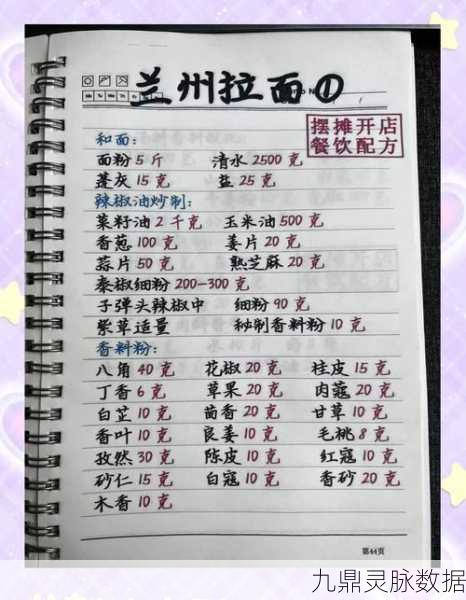 兰州拉面①
摆摊开店
餐饮配方
和面:
面粉5斤 清水2500克
蓬灰15克 盐25克
辣椒油炒制:
菜籽油2千克 玉米油500克
香葱100克 姜片20克
蒜片50克 熟芝麻20克
秦椒细粉200-300克
子弹头辣椒中 细粉90克
紫草适量 秘制香料粉10克
香料粉:
八角40克 花椒20克 桂皮15克
丁香6克 草果20克 肉蔻20克
白芷10克 茴香20克 甘草10克
香叶10克 良姜10克 毛桃8克
孜然30克 陈皮10克 红蔻10克
砂仁15克 白蔻10克 香砂20克
木香10克
第44页
九鼎灵脉数据